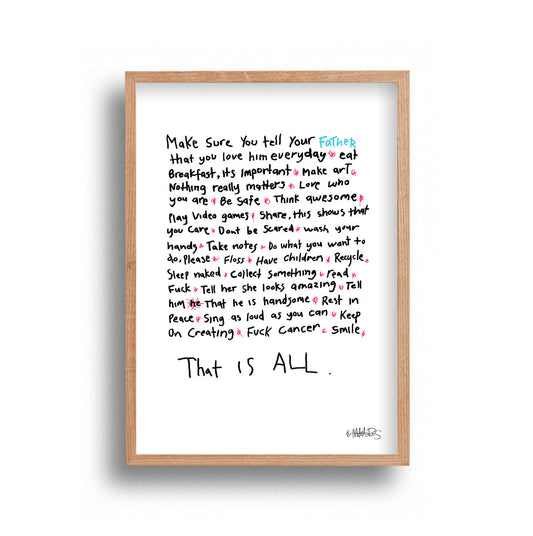 Make Sure You tell Your Father
that you love him everyday * eat
Breakfast, its Important * Make art *
Nothing really matters * Love who
you are * Be Safe * Think awesome *
Play Video games * Share, this shows that
you care * Dont be Scared * wash your
hands * Take notes * Do what you want to
do, Please * Floss * Have Children * Recycle *
Sleep naked * Collect Something * read *
Fuck * Tell her She looks amazing * Tell
him he That he is handsome * Rest in
Peace * Sing as loud as you can * Keep
On Creating * Fuck Cancer * Smile *
That IS ALL.